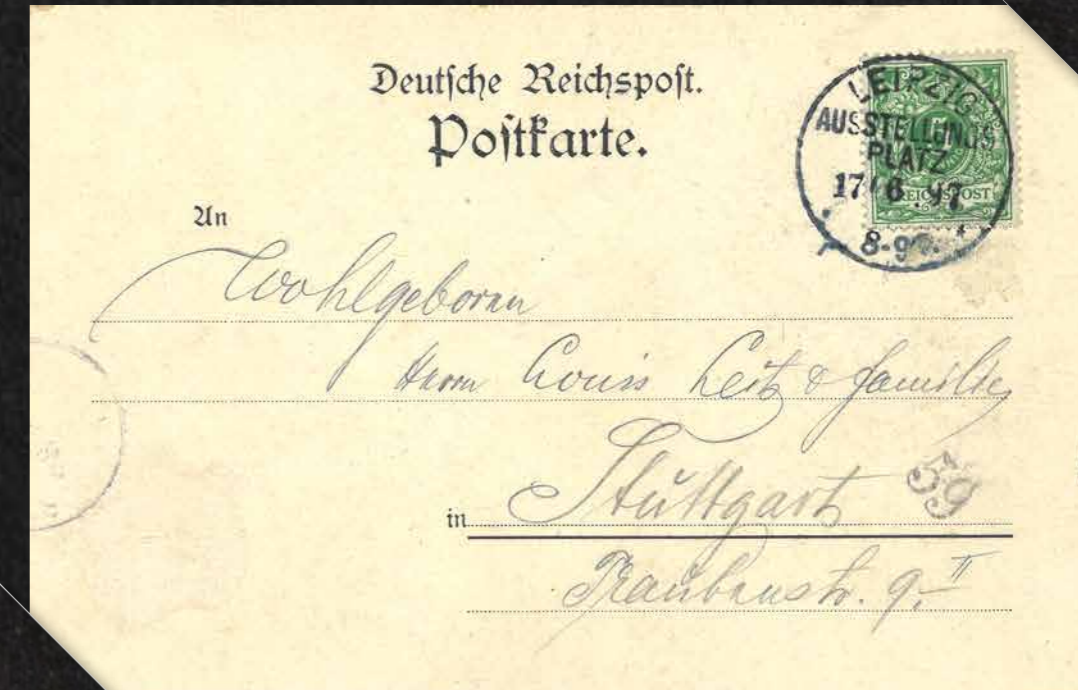 Deutsche Reichspost.
Postkarte.
LEIPZIG
AUSSTELLUNGS
PLATZ
17/6.97
8-9
REICHSPOST
An
Wohlgeboren
Herrn Louis Leitz & Familie,
in Stuttgart
59
Traubenstr. 9. II